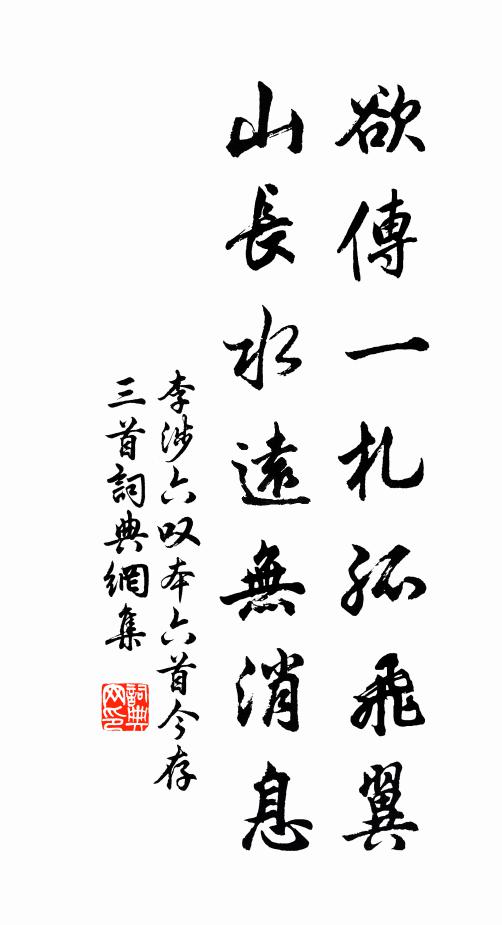 欲傳一札孤飛翼
山長水遠無消息
李涉六叹本六首今存
三首詞典網集
詞典
网印